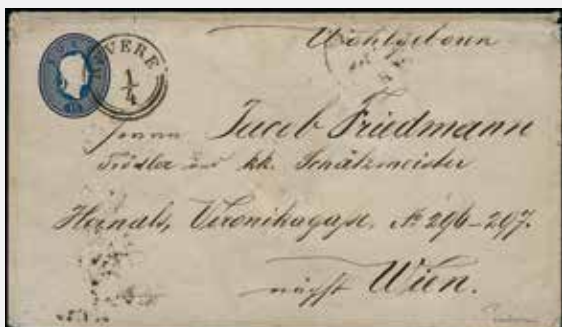 VERE
1/4
Wohlgeborn
Herrn Jacob Friedmann
Trödler und kk. Schätzmeister
Hernals, Veronikagasse, № 296-297.
nächst Wien.